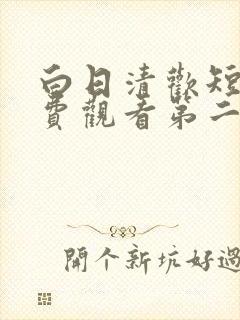 白日清歡短
費觀看第二
開個新坑好過